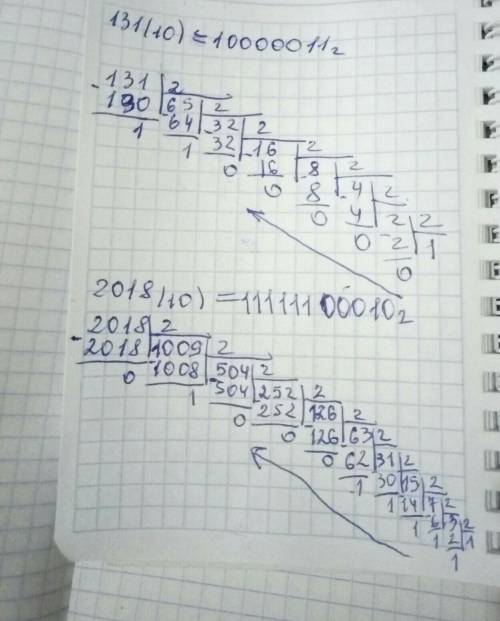 131(10) = 10000011₂
-131 | 2
130 | -65 | 2
1 64 | -32 | 2
1 32 | -16 | 2
0 16 | -8 | 2
0 8 | -4 | 2
0 4 | -2 | 2
0 2 | 1
0
2018(10) = 11111100010₂
-2018 | 2
2018 | 1009 | 2
0 1008 | 504 | 2
1 504 | 252 | 2
0 252 | 126 | 2
0 126 | 63 | 2
0 62 | 31 | 2
1 30 | 15 | 2
1 14 | 7 | 2
1 6 | 3 | 2
1 2 | 1
1